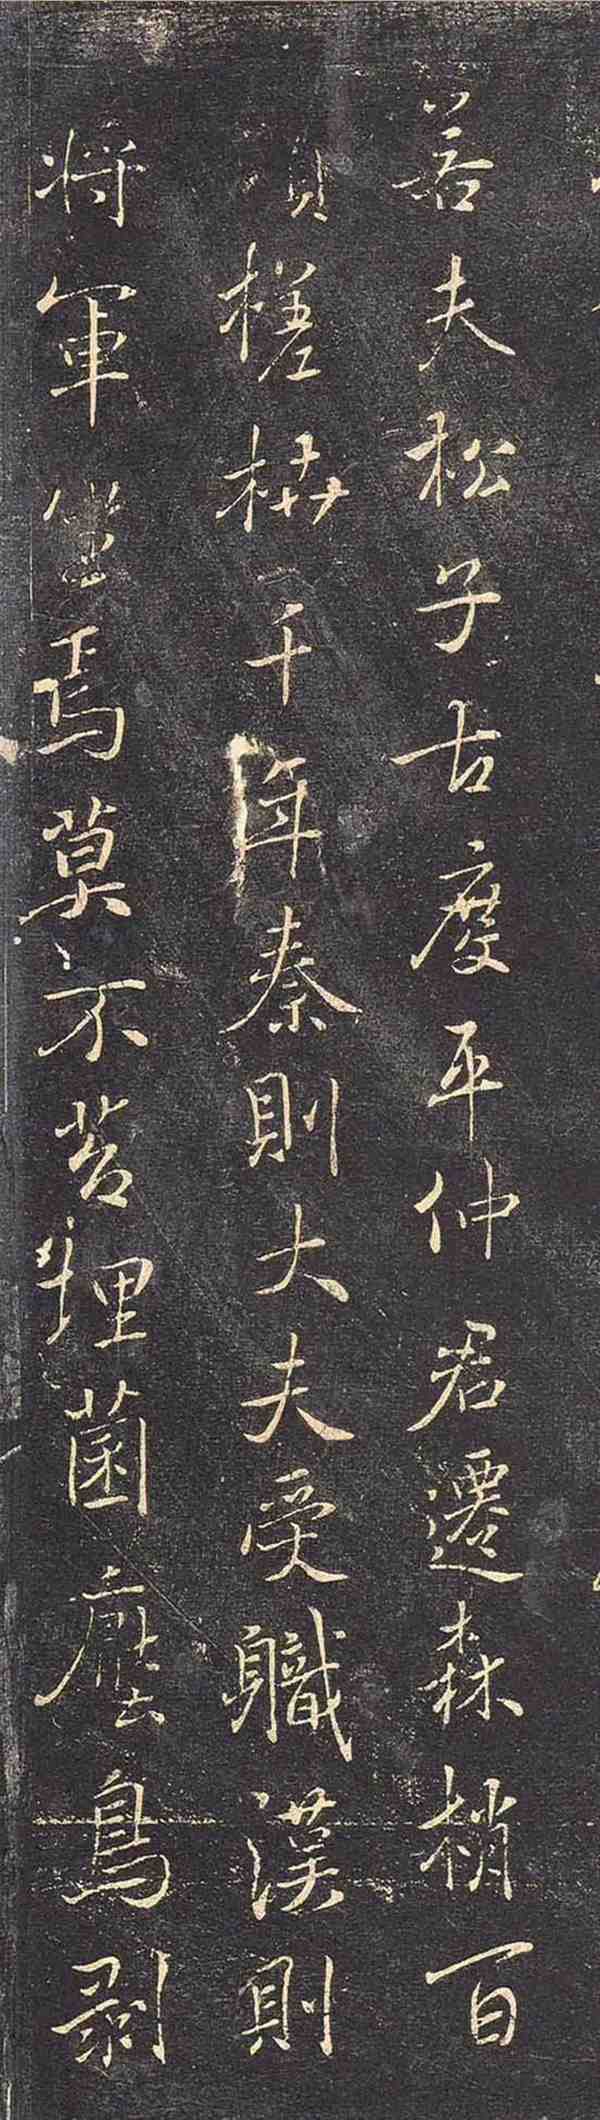 若夫松子古度平仲君遷森梢百
頃槎枿千年秦則大夫受職漢則
將軍坐焉莫不苔埋菌壓鳥剥